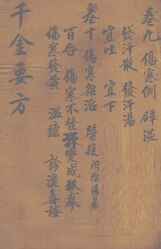 卷九 傷寒例 辟溫
發汗散 發汗湯
宜吐 宜下
卷十 傷寒雜治 勞復 附陰陽易
百合 傷寒不發汗變成狐惑
傷寒發黃 溫瘧 診溪毒證
千金要方